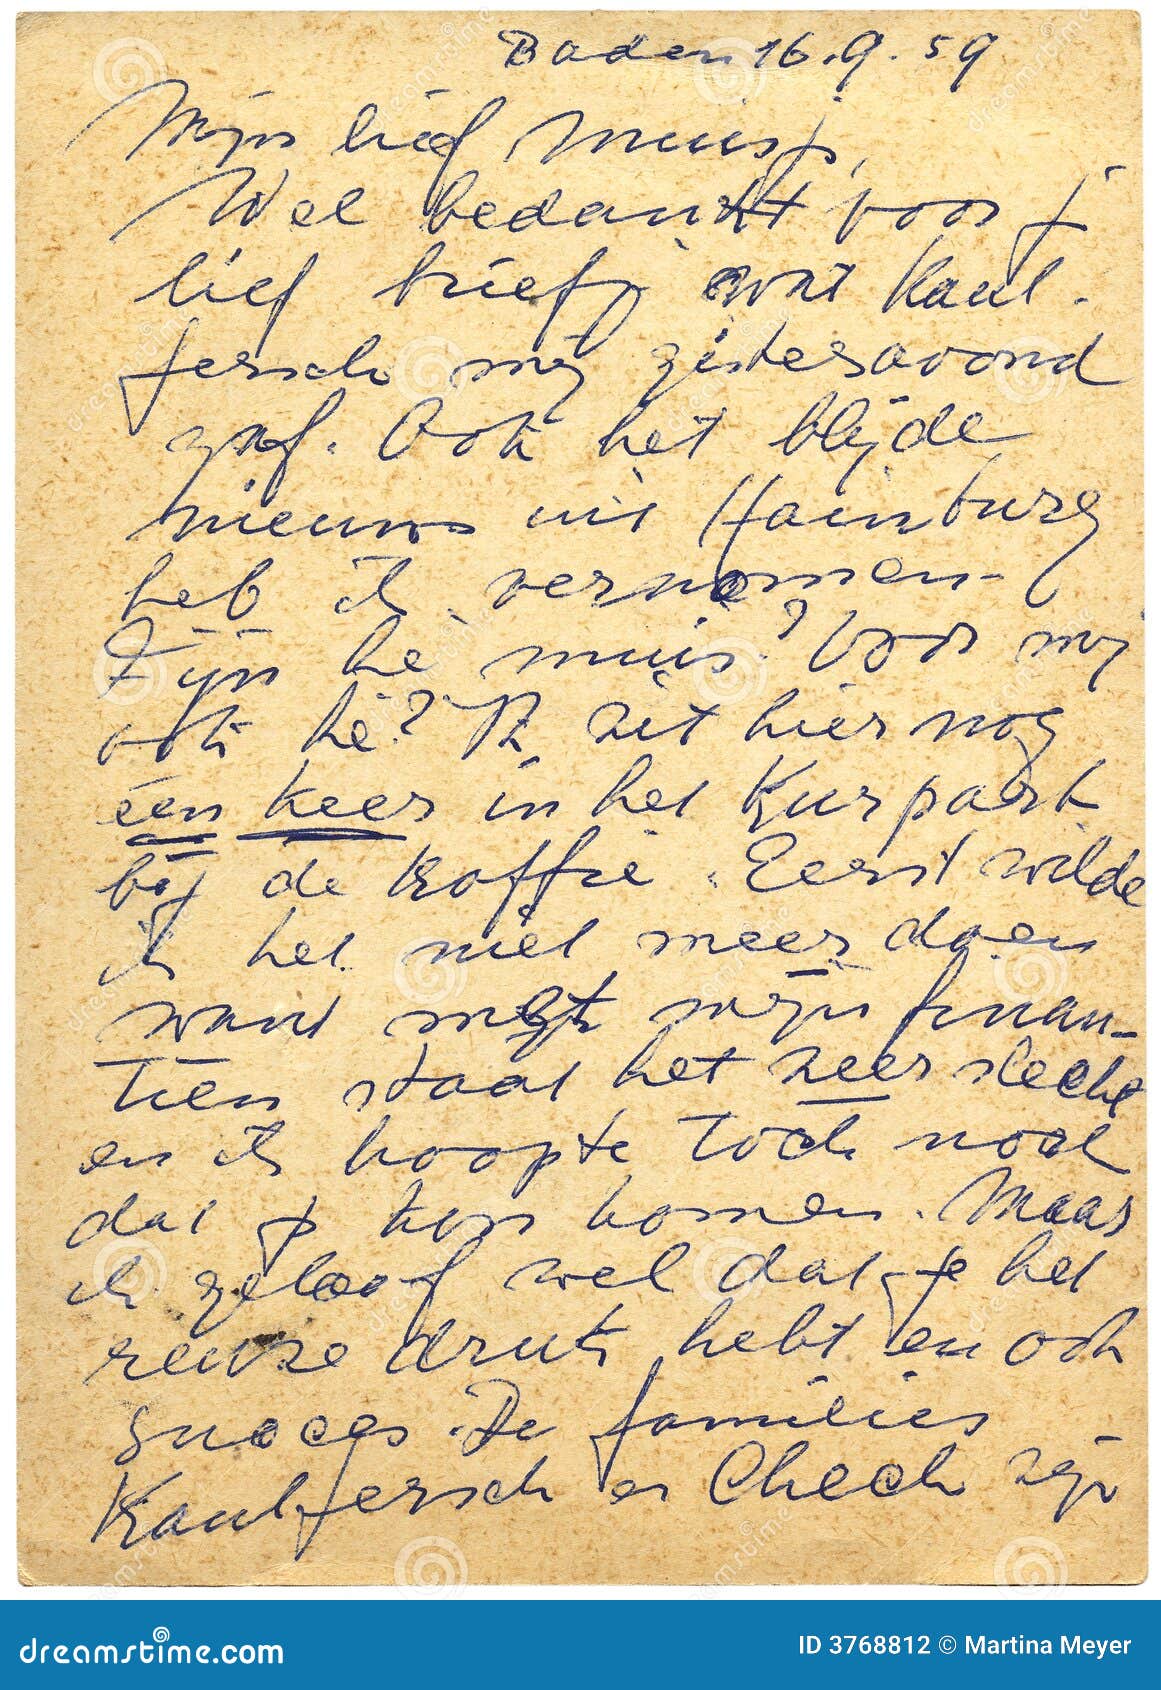 Baden 16.9.59
Mijn lief muisj,
Wel bedankt voor j
lief briefj wat Kaul-
fersch mij gisteravond
gaf. Ook het blijde
nieuws uit Hainburg
heb ik vernomen.
Fijn hè muis? Voor mij
ook hè? Ik zit hier nog
één keer in het Kurpark
bij de koffie. Eerst wilde
ik het niet meer doen
want met mijn finan-
tien staat het zeer slecht
en ik hoopte toch nooit
dat j kon komen. Maar
ik geloof wel dat je het
reuze druk hebt en ook
succes. De families
Kaulfersch en Chech zijn
dreamstime.com
ID 3768812 © Martina Meyer